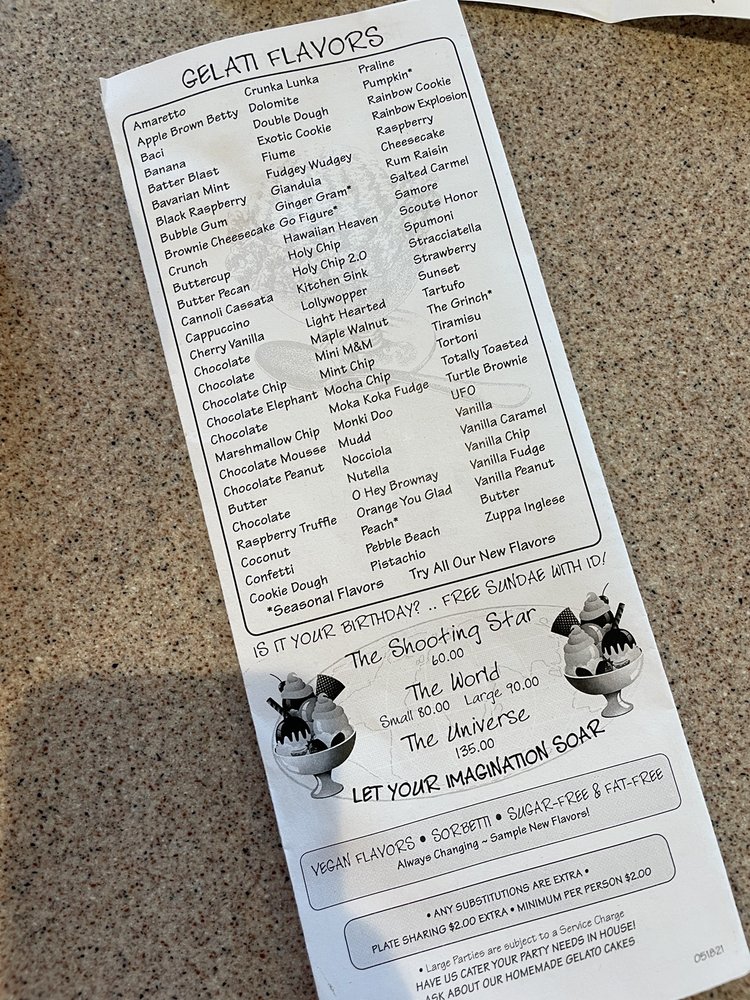 GELATI FLAVORS
Amaretto
Apple Brown Betty
Baci
Banana
Batter Blast
Bavarian Mint
Black Raspberry
Bubble Gum
Brownie Cheesecake
Crunch
Buttercup
Butter Pecan
Cannoli Cassata
Cappuccino
Cherry Vanilla
Chocolate
Chocolate
Chocolate Chip
Chocolate Elephant
Chocolate
Marshmallow Chip
Chocolate Mousse
Chocolate Peanut
Butter
Chocolate
Raspberry Truffle
Coconut
Confetti
Cookie Dough
Crunka Lunka
Dolomite
Double Dough
Exotic Cookie
Fiume
Fudgey Wudgey
Giandula
Ginger Gram*
Go Figure*
Hawaiian Heaven
Holy Chip
Holy Chip 2.0
Kitchen Sink
Lollywopper
Light Hearted
Maple Walnut
Mini M&M
Mint Chip
Mocha Chip
Moka Koka Fudge
Monki Doo
Mudd
Nocciola
Nutella
O Hey Brownay
Orange You Glad
Peach*
Pebble Beach
Pistachio
Praline
Pumpkin*
Rainbow Cookie
Rainbow Explosion
Raspberry
Cheesecake
Rum Raisin
Salted Carmel
Samore
Scouts Honor
Spumoni
Stracciatella
Strawberry
Sunset
Tartufo
The Grinch*
Tiramisu
Tortoni
Totally Toasted
Turtle Brownie
UFO
Vanilla
Vanilla Caramel
Vanilla Chip
Vanilla Fudge
Vanilla Peanut
Butter
Zuppa Inglese
*Seasonal Flavors Try All Our New Flavors
IS IT YOUR BIRTHDAY? .. FREE SUNDAE WITH ID!
The Shooting Star
60.00
The World
Small 80.00 Large 90.00
The Universe
135.00
LET YOUR IMAGINATION SOAR
VEGAN FLAVORS • SORBETTI • SUGAR-FREE & FAT-FREE
Always Changing ~ Sample New Flavors!
• ANY SUBSTITUTIONS ARE EXTRA •
PLATE SHARING $2.00 EXTRA • MINIMUM PER PERSON $2.00
• Large Parties are subject to a Service Charge
HAVE US CATER YOUR PARTY NEEDS IN HOUSE!
ASK ABOUT OUR HOMEMADE GELATO CAKES
051821